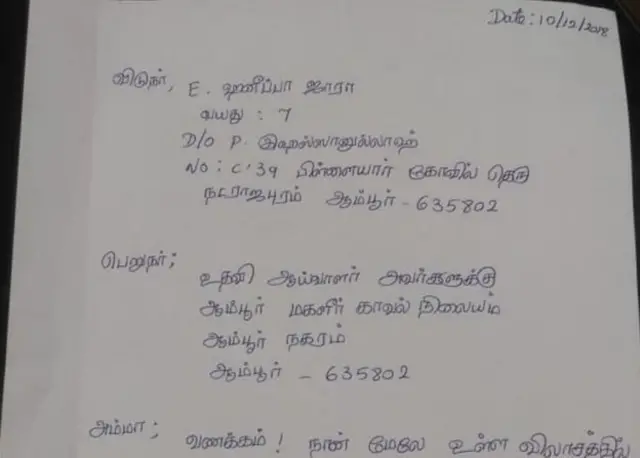 Date: 10/12/2018
விடுநர், E. ஹனீப்பா ஜாரா
வயது : 7
D/O P. இஹ்ஸானுல்லாஹ்
NO: C/39 பிள்ளையார் கோவில் தெரு
நடராஜபுரம் ஆம்பூர் - 635802
பெறுநர்;
உதவி ஆய்வாளர் அவர்களுக்கு
ஆம்பூர் மகளிர் காவல் நிலையம்
ஆம்பூர் நகரம்
ஆம்பூர் - 635802
அம்மா; வணக்கம்! நான் மேலே உள்ள விலாசத்தில்